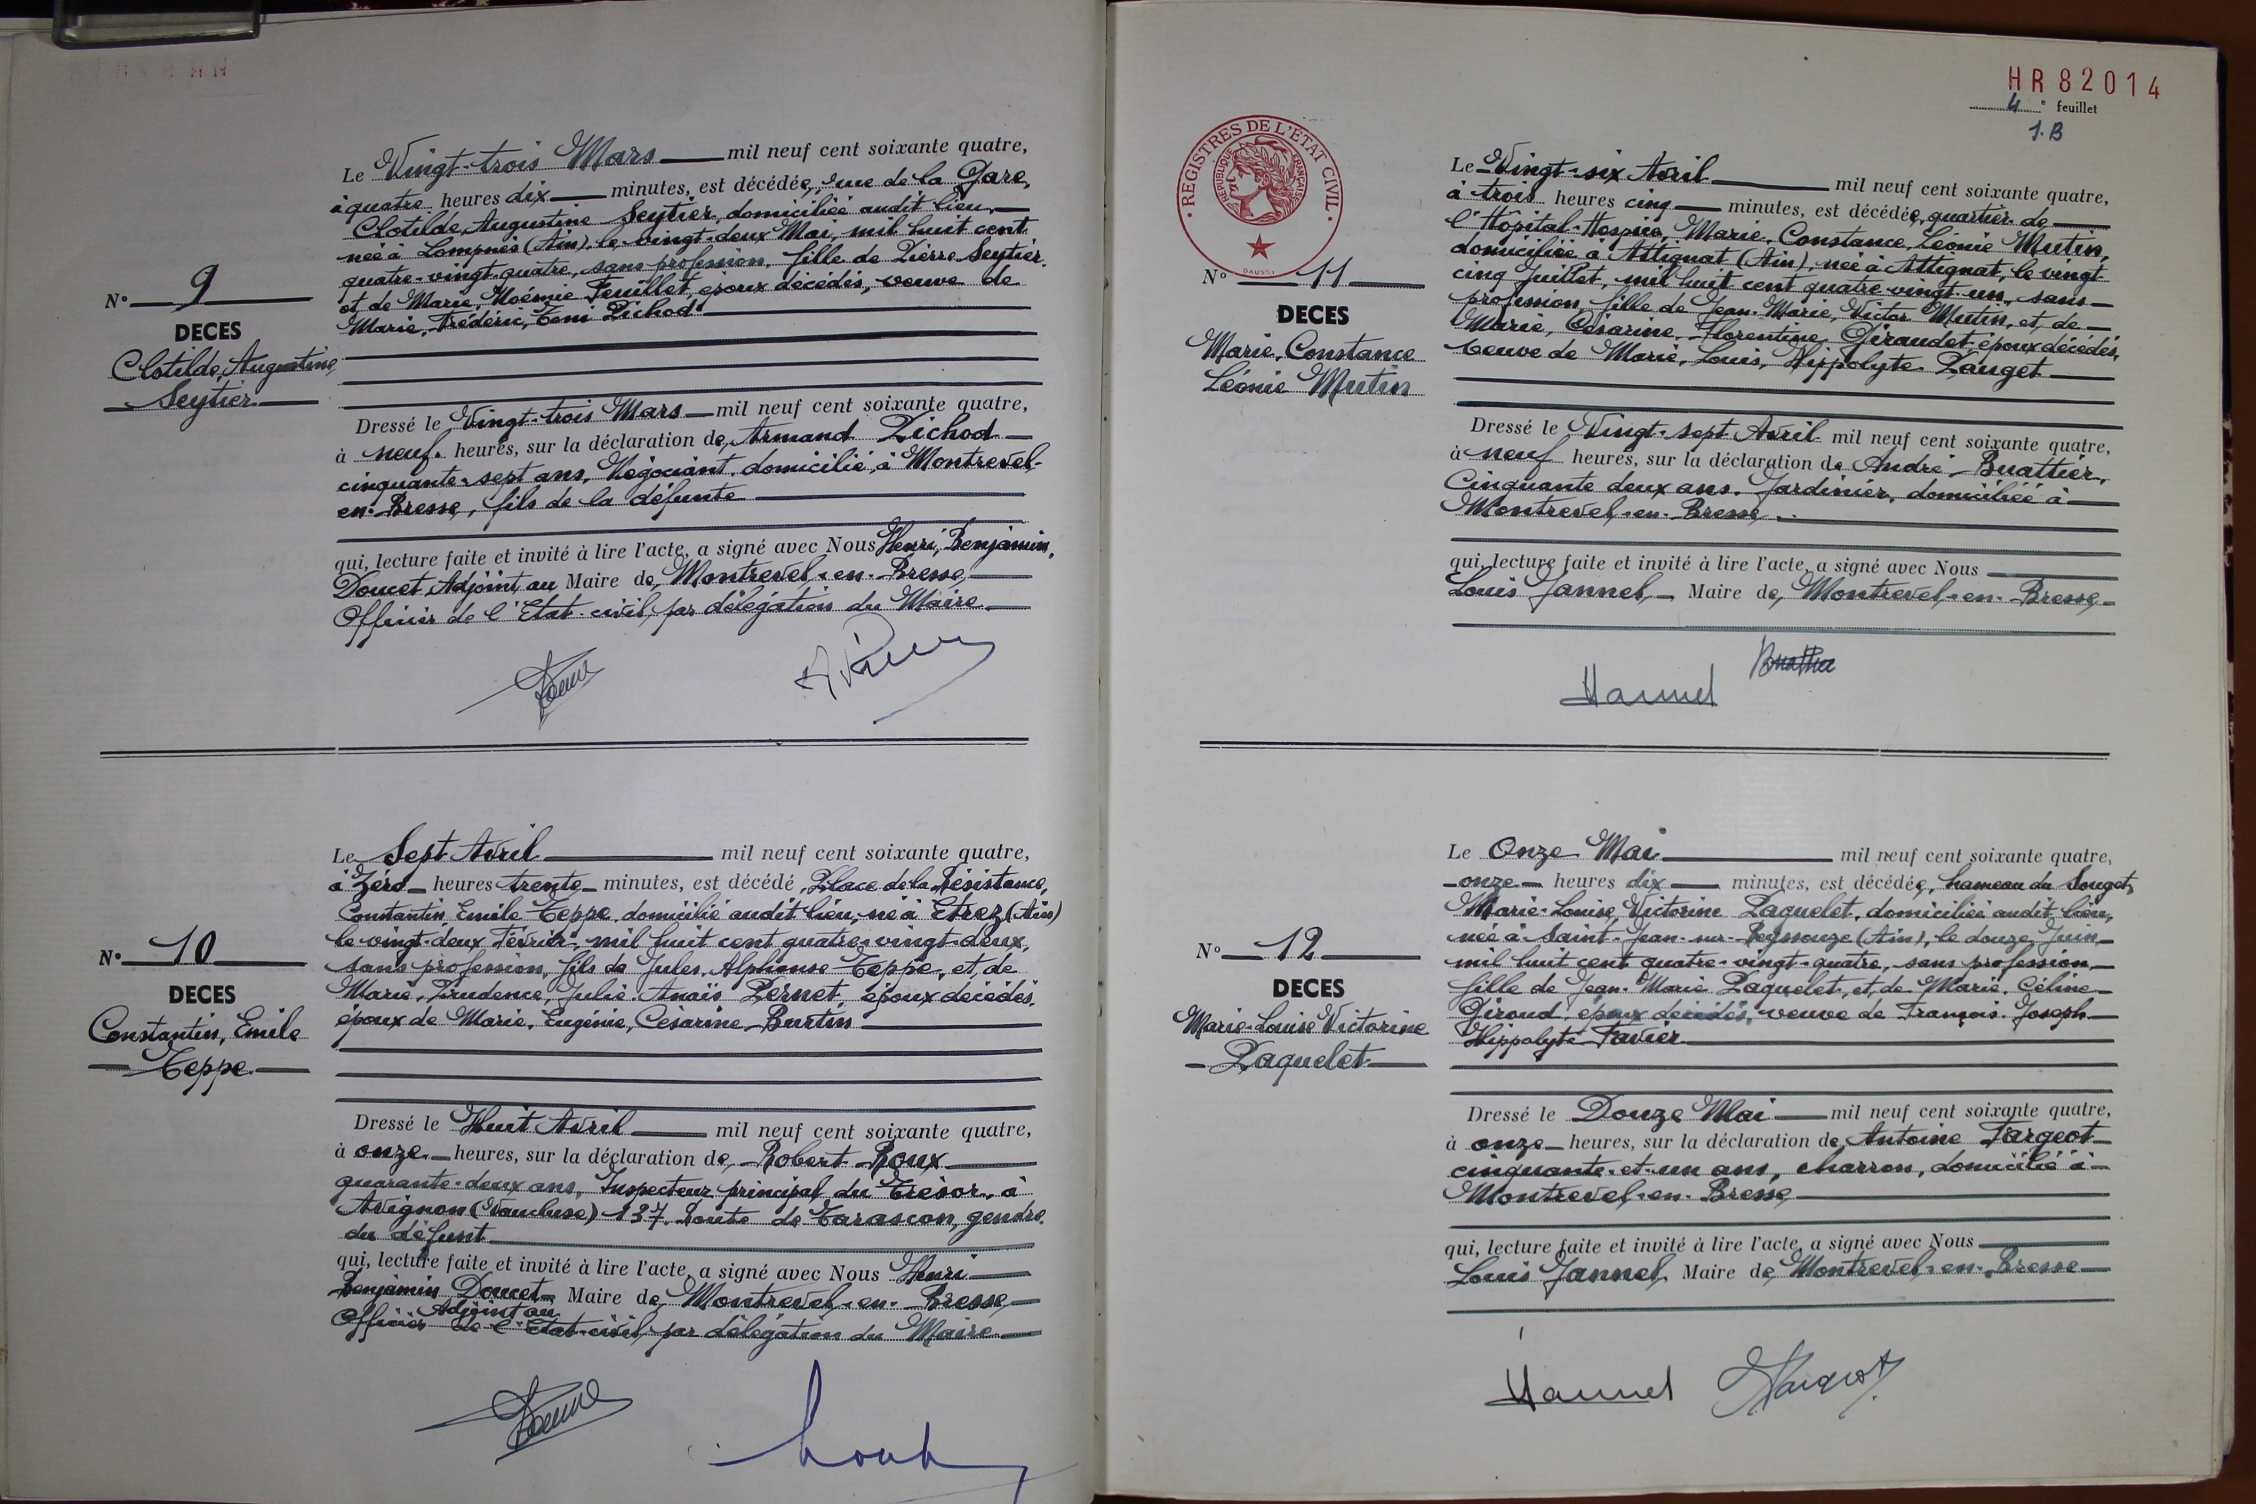 Le Vingt-trois Mars mil neuf cent soixante quatre,
à quatre heures dix minutes, est décédée, rue de la Gare,
Clotilde, Augustine Seytier, domiciliée audit lieu,
née à Lompnes (Ain), le vingt-deux Mai, mil huit cent
quatre-vingt-quatre, sans profession, fille de Pierre Seytier
et de Marie, Noémie Feuillet, époux décédés, veuve de
Marie, Frédéric, Pichod
N° 9
DECES
Clotilde, Augustine
Seytier
Dressé le Vingt-trois Mars mil neuf cent soixante quatre,
à neuf heures, sur la déclaration de Armand Pichod
cinquante-sept ans, Négociant, domicilié à Montrevel-
en-Bresse, fils de la défunte
qui, lecture faite et invité à lire l'acte, a signé avec Nous Henri, Benjamin,
Doucet, Adjoint au Maire de Montrevel-en-Bresse,
Officier de l'Etat-civil, par délégation du Maire
Le Sept Avril mil neuf cent soixante quatre,
à Zéro heures trente minutes, est décédé, Place de la Résistance,
Constantin Emile Teppe, domicilié audit lieu, né à Etrez (Ain)
le vingt-deux Février, mil huit cent quatre-vingt-deux,
sans profession, fils de Jules, Alphonse Teppe, et de
Marie, Prudence, Julie, Anaïs Pernet, époux décédés,
époux de Marie, Eugénie, Césarine Burtin
N° 10
DECES
Constantin, Emile
Teppe
Dressé le Huit Avril mil neuf cent soixante quatre,
à onze heures, sur la déclaration de Robert Roux
quarante-deux ans, Inspecteur principal du Trésor, à
Avignon (Vaucluse) 137, Route de Tarascon, gendre
du défunt
qui, lecture faite et invité à lire l'acte, a signé avec Nous Henri
Benjamin Doucet, Maire de Montrevel-en-Bresse,
Adjoint au
Officier de l'Etat-civil, par délégation du Maire
HR82014
4e feuillet
1.B
REGISTRES DE L'ETAT CIVIL
REPUBLIQUE FRANÇAISE
DAUSSY
Le Vingt-six Avril mil neuf cent soixante quatre,
à trois heures cinq minutes, est décédée, quartier de
l'Hôpital-Hospice, Marie, Constance, Léonie Mutin,
domiciliée à Attignat (Ain), née à Attignat, le vingt
cinq Juillet, mil huit cent quatre-vingt-un, sans
profession, fille de Jean-Marie, Victor Mutin, et de
Marie, Césarine, Florentine Giraudet époux décédés,
veuve de Marie, Louis, Hippolyte Pauget
N° 11
DECES
Marie, Constance
Léonie Mutin
Dressé le Vingt-sept Avril mil neuf cent soixante quatre,
à neuf heures, sur la déclaration de André Buattier,
Cinquante deux ans, Jardinier, domiciliée à
Montrevel-en-Bresse
qui, lecture faite et invité à lire l'acte, a signé avec Nous
Louis Jannel, Maire de Montrevel-en-Bresse
Buattier
Jannel
Le Onze Mai mil neuf cent soixante quatre,
onze heures dix minutes, est décédée, hameau du Souget,
Marie-Louise, Victorine Paquelet, domiciliée audit lieu,
née à Saint-Jean-sur-Reyssouze (Ain), le douze Juin
mil huit cent quatre-vingt-quatre, sans profession
fille de Jean-Marie Paquelet, et de Marie, Céline
Giroud, époux décédés, veuve de François-Joseph
Hippolyte Favier
N° 12
DECES
Marie-Louise Victorine
Paquelet
Dressé le Douze Mai mil neuf cent soixante quatre,
à onze heures, sur la déclaration de Antoine Fargeot
cinquante-et-un ans, charron, domicilié à
Montrevel-en-Bresse
qui, lecture faite et invité à lire l'acte, a signé avec Nous
Louis Jannel, Maire de Montrevel-en-Bresse
Jannel Fargeot